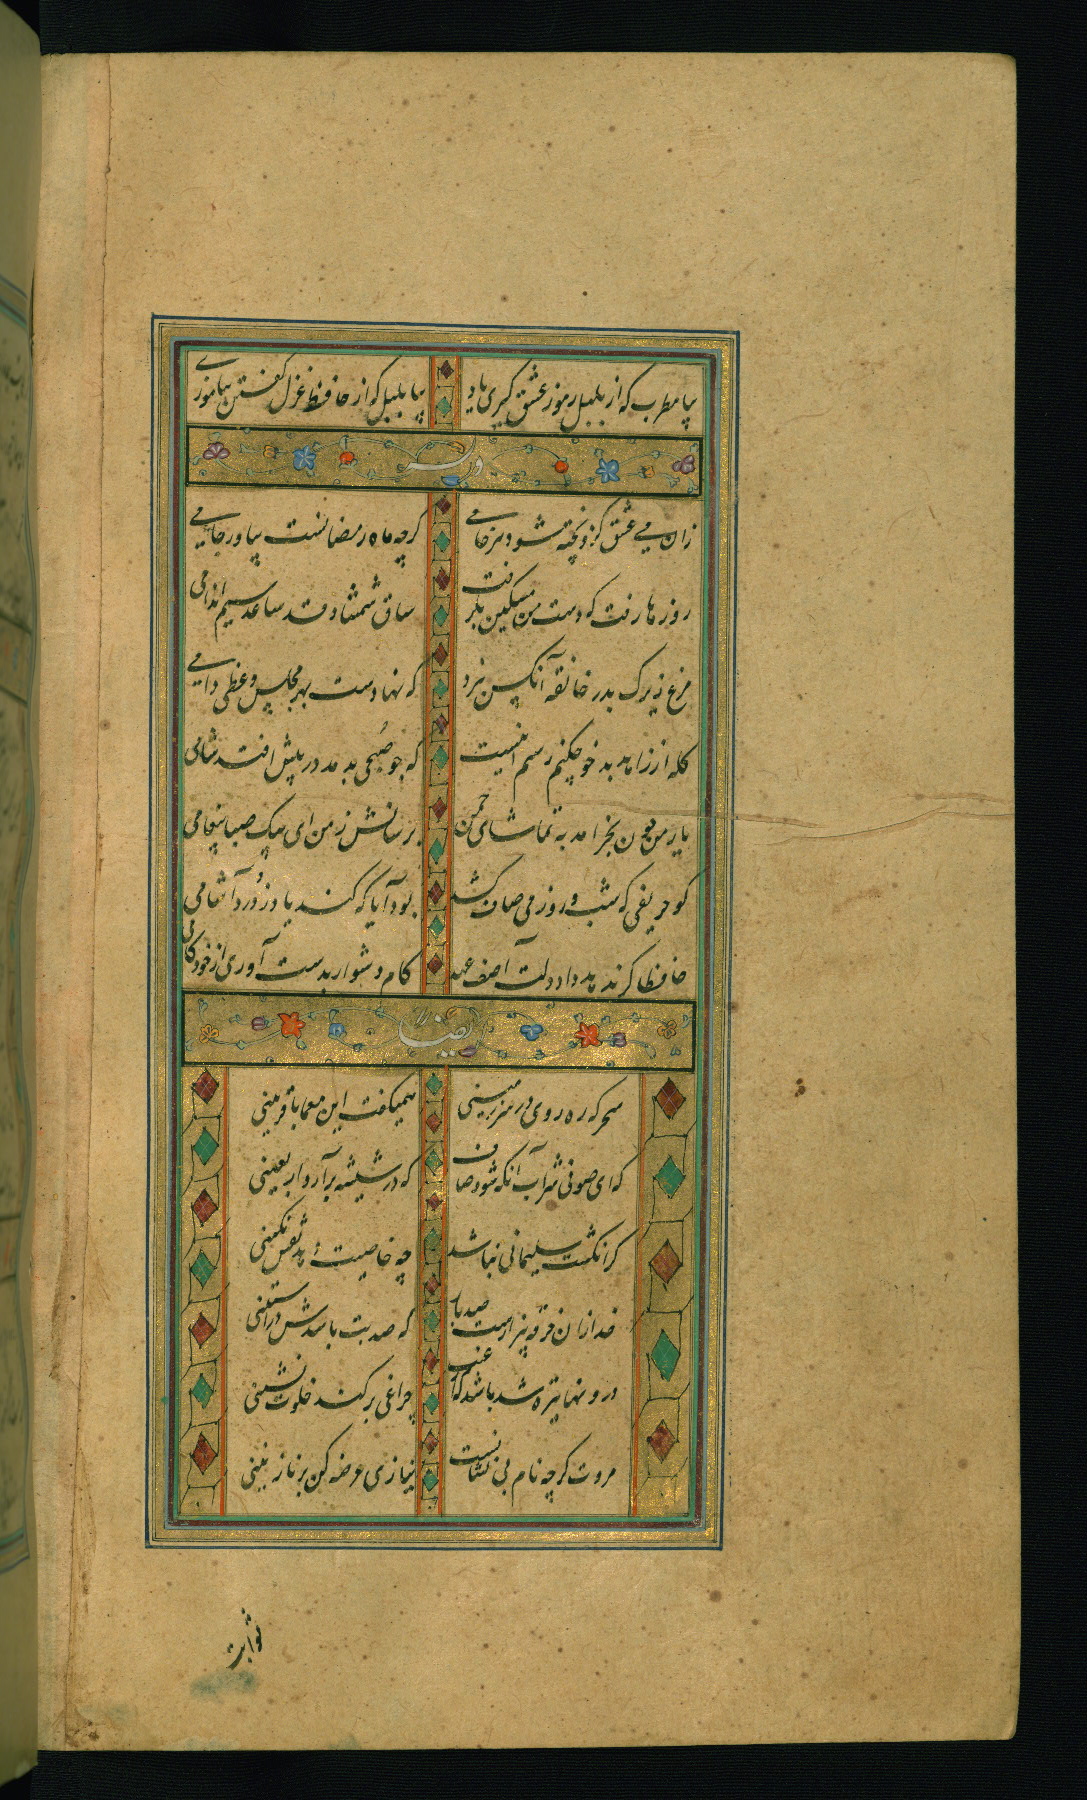 بیا مطرب که از بلبل رموز عشق گیری یاد بیا بلبل کو از حافظ غزل گفتن بیاموزی
وله
زان می عشق کزو پخته شود هر خامی گرچه ماه رمضانست بیاور جامی
روزها رفت که دست من مسکین نگرفت ساق شمشاد قد ساعد سیم اندامی
مرغ زیرک بدر خانقه آنکس نپرد که نهادست بهر مجلس وعظی دامی
گله از زاهد بدخو چکنم رسم اینست که چو صبحی بدمد در پیش افتد شامی
یار من چون بخرامد به تماشای چمن برسانش ز من ای پیک صبا پیغامی
کو حریفی که شب و روز می صاف کشد بود آیا که کند یاد ز دردآشامی
حافظا گر ندهد داد دلت آصف عهد کام دشوار بدست آوری از خود کامی
ایضا
سحرگه ره روی در سرزمینی همیگفت این معما با قرینی
که ای صوفی شراب آنگه شود صاف که در شیشه برآرد اربعینی
گر انگشت سلیمانی نباشد چه خاصیت دهد نقش نگینی
خدا زان خرقه بیزارست صد بار که صد بت باشدش در آستینی
درونها تیره شد باشد که از غیب چراغی بر کند خلوت نشینی
مروت گرچه نام بی نشانست نیازی عرضه کن بر نازنینی
ثوابت